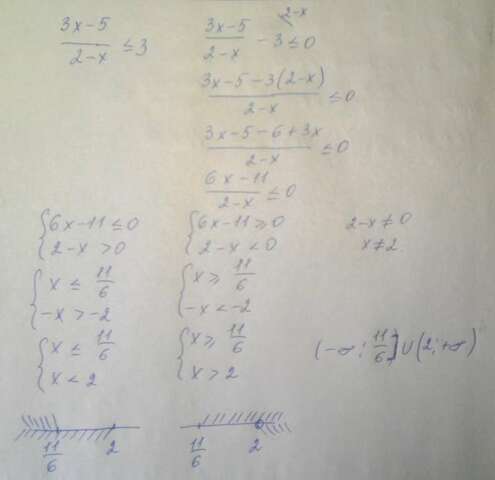 (3x-5)/(2-x) ≤ 3
(3x-5)/(2-x) - 3 ≤ 0
2-x
(3x-5-3(2-x))/(2-x) ≤ 0
(3x-5-6+3x)/(2-x) ≤ 0
(6x-11)/(2-x) ≤ 0
{6x-11 ≤ 0
2-x > 0
{x ≤ 11/6
-x > -2
{x ≤ 11/6
x < 2
11/6 2
{6x-11 ≥ 0
2-x < 0
{x ≥ 11/6
-x < -2
{x ≥ 11/6
x > 2
11/6 2
2-x ≠ 0
x ≠ 2.
(-∞; 11/6] ∪ (2; +∞)